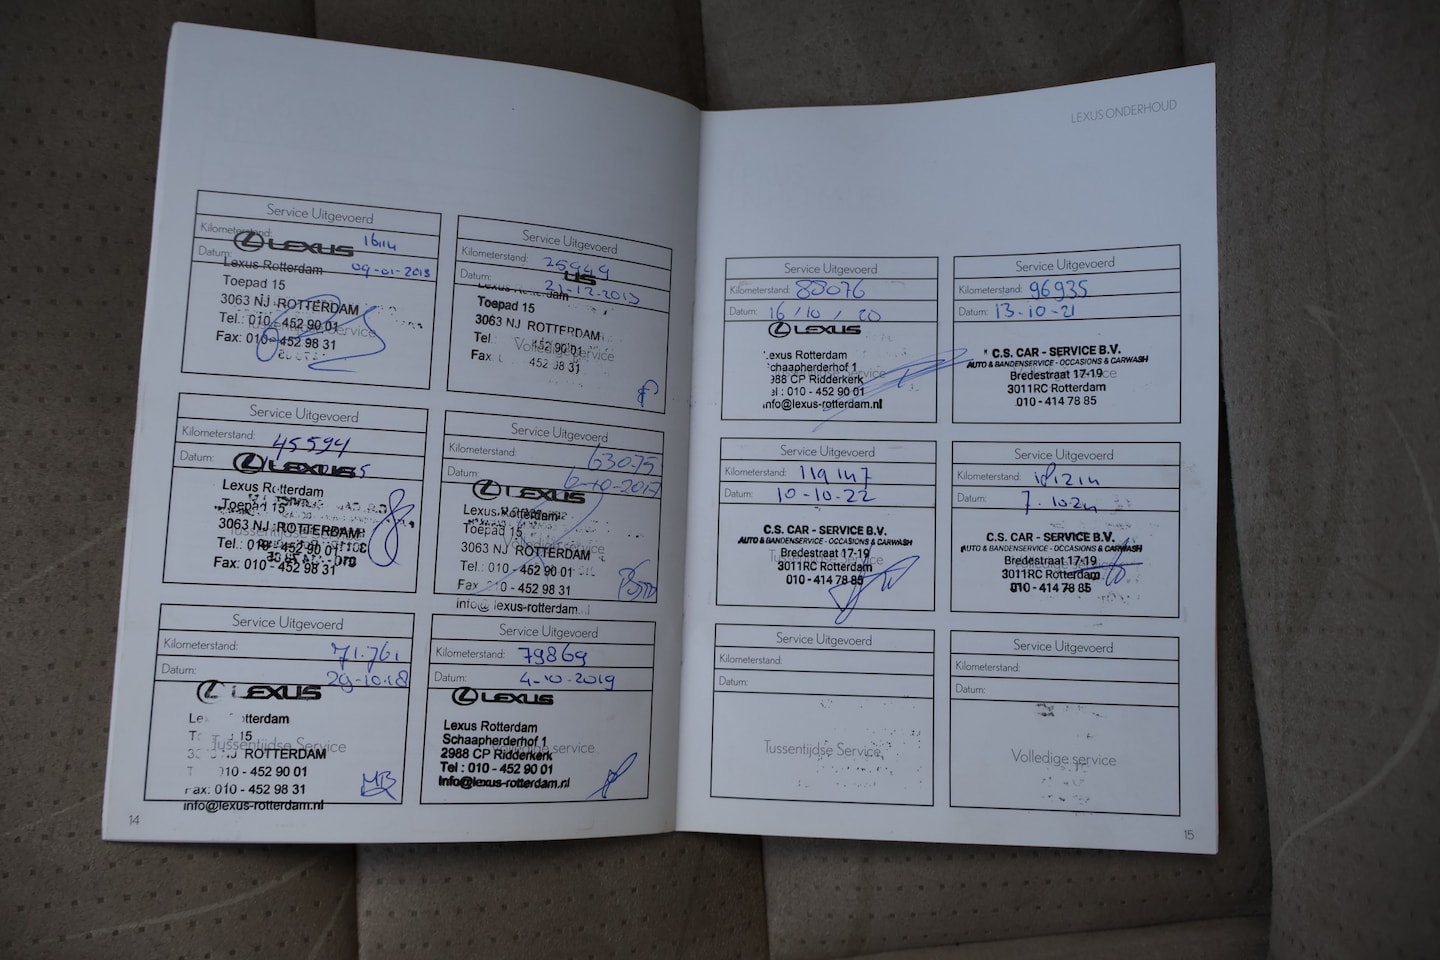 LEXUS ONDERHOUD
Service Uitgevoerd
Kilometerstand:
Datum: 09-01-2013
LEXUS
Lexus Rotterdam
Toepad 15
3063 NJ ROTTERDAM
Tel.: 010 - 452 90 01
Fax: 010 - 452 98 31
Tussentijdse Service
Service Uitgevoerd
Kilometerstand: 25949
Datum:
US
Lexus Rotterdam
Toepad 15
3063 NJ ROTTERDAM
Tel 452 90 01
Fax 452 98 31
Volledige service
Service Uitgevoerd
Kilometerstand: 45594
Datum:
LEXUS
Lexus Rotterdam
Toepad 15
3063 NJ ROTTERDAM
Tel.: 010 - 452 90 01
Fax: 010 - 452 98 31
Service Uitgevoerd
Kilometerstand: 63075
Datum: 6-10-2017
LEXUS
Lexus Rotterdam
Toepad 15
3063 NJ ROTTERDAM
Tel.: 010 - 452 90 01
Fax 0 - 452 98 31
info@lexus-rotterdam
Volledige service
Service Uitgevoerd
Kilometerstand: 71.761
Datum: 29-10-18
LEXUS
Le tterdam
T 15
3 NJ ROTTERDAM
T 010 - 452 90 01
Fax: 010 - 452 98 31
info@lexus-rotterdam.nl
Tussentijdse Service
MB
Service Uitgevoerd
Kilometerstand: 79869
Datum: 4-10-2019
LEXUS
Lexus Rotterdam
Schaapherderhof 1
2988 CP Ridderkerk
Tel : 010 - 452 90 01
Info@lexus-rotterdam.nl
service
14
Service Uitgevoerd
Kilometerstand: 88076
Datum: 16/10/20
LEXUS
Lexus Rotterdam
Schaapherderhof 1
2988 CP Ridderkerk
Tel : 010 - 452 90 01
info@lexus-rotterdam.nl
Service
Service Uitgevoerd
Kilometerstand: 96935
Datum: 13-10-21
C.S. CAR - SERVICE B.V.
AUTO & BANDENSERVICE - OCCASIONS & CARWASH
Bredestraat 17-19
3011RC Rotterdam
010 - 414 78 85
Service Uitgevoerd
Kilometerstand: 119147
Datum: 10-10-22
C.S. CAR - SERVICE B.V.
AUTO & BANDENSERVICE - OCCASIONS & CARWASH
Bredestraat 17-19
3011RC Rotterdam
010 - 414 78 85
Service Uitgevoerd
Kilometerstand:
Datum:
C.S. CAR - SERVICE B.V.
AUTO & BANDENSERVICE - OCCASIONS & CARWASH
Bredestraat 17-19
3011RC Rotterdam
010 - 414 78 85
Service Uitgevoerd
Kilometerstand:
Datum:
Tussentijdse Service
Service Uitgevoerd
Kilometerstand:
Datum:
Volledige service
15